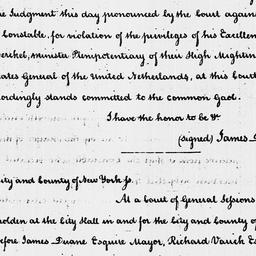 he Judgment this day pronounced by the Court against
Constable, for violation of the privileges of his Excellen
erckel, minister Plenipotentiary of their High Mightin
ates General of the United Netherlands, at this Court
ordingly stands committed to the common Gaol.
I have the honor to be &c.
(signed) James
ity and County of New York ss.
At a Court of General Sessions
holden at the City Hall in and for the City and County of
efore James Duane Esquire Mayor, Richard Varick Es